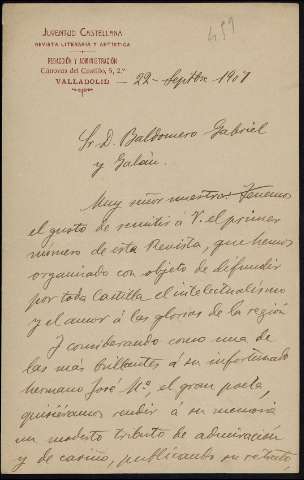 499
JUVENTUD CASTELLANA
REVISTA LITERARIA Y ARTÍSTICA
REDACCIÓN Y ADMINISTRACIÓN
Cánovas del Castillo, 5, 2.º
VALLADOLID
22 - Septbre 1907
Sr. D. Baldomero Gabriel
y Galán.
Muy señor nuestro: Tenemos
el gusto de remitir á V. el primer
número de esta Revista, que hemos
organizado con objeto de difundir
por toda Castilla el intelectualismo
y el amor á las glorias de la región
Y considerando como una de
las más brillantes á su infortunado
hermano José Mª, el gran poeta,
quisiéramos rendir á su memoria
un modesto tributo de admiración
y de cariño, publicando su retrato,